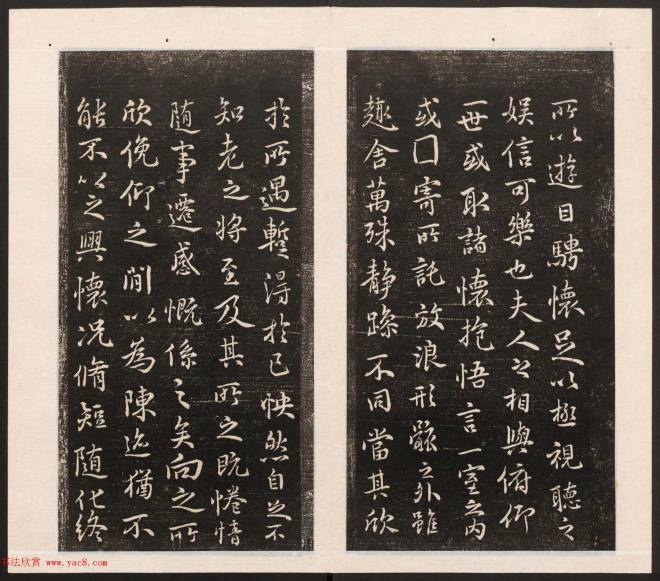 所以遊目騁懷足以極視聽之
娱信可樂也夫人之相與俯仰
一世或取諸懷抱悟言一室之内
或□寄所託放浪形骸之外雖
趣舍萬殊静躁不同當其欣
於所遇暫得於己怏然自足不
知老之將至及其所之既惓情
随事遷感慨係之矣向之所
欣俛仰之間以為陳迹猶不
能不以之興懷况脩短随化終
书法欣赏 www.yac8.com